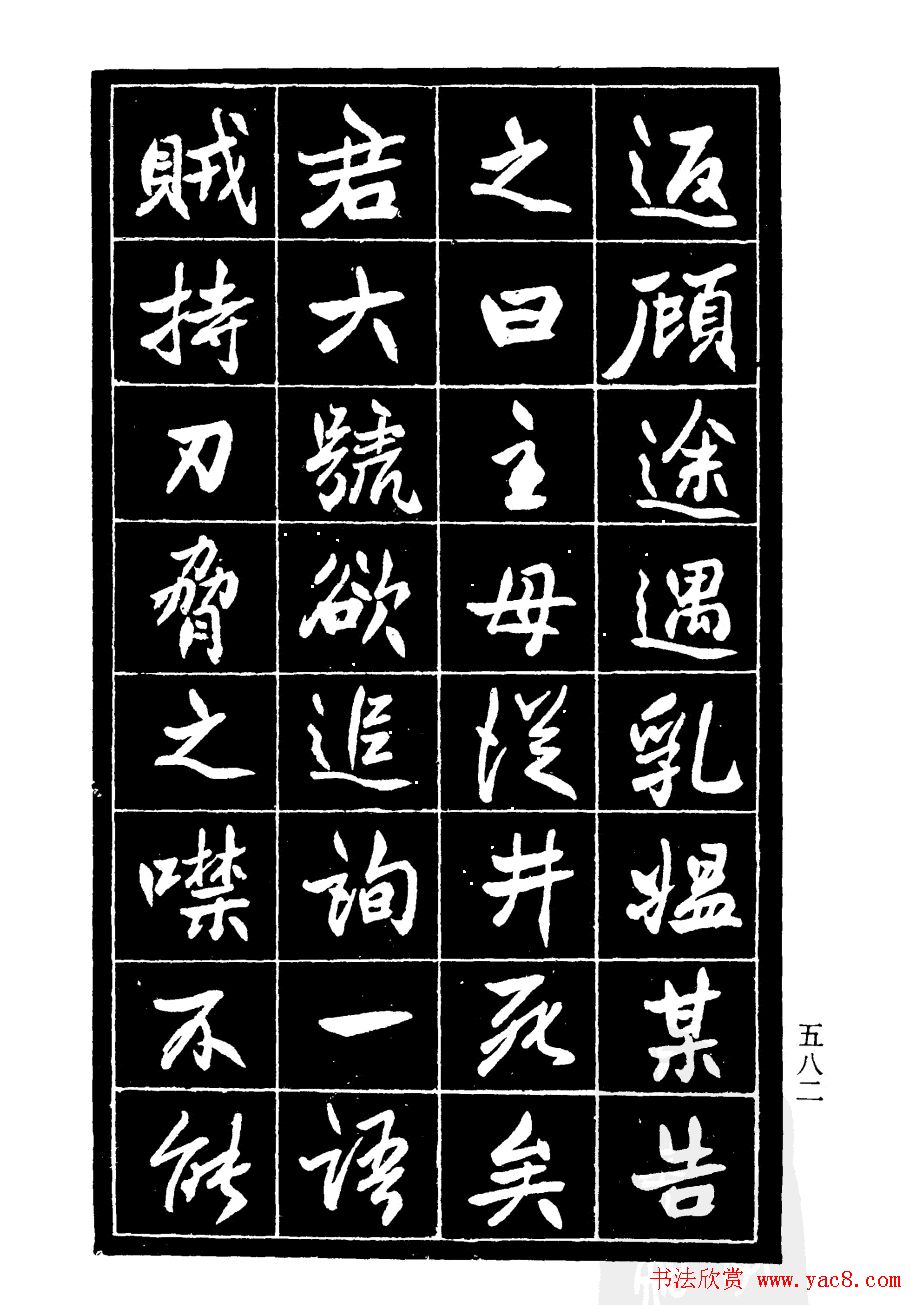 返顧途遇乳媼某告
之曰主母從井死矣
君大號欲追詢一語
賊持刀脅之噤不能
五八二
书法欣赏 www.yac8.com